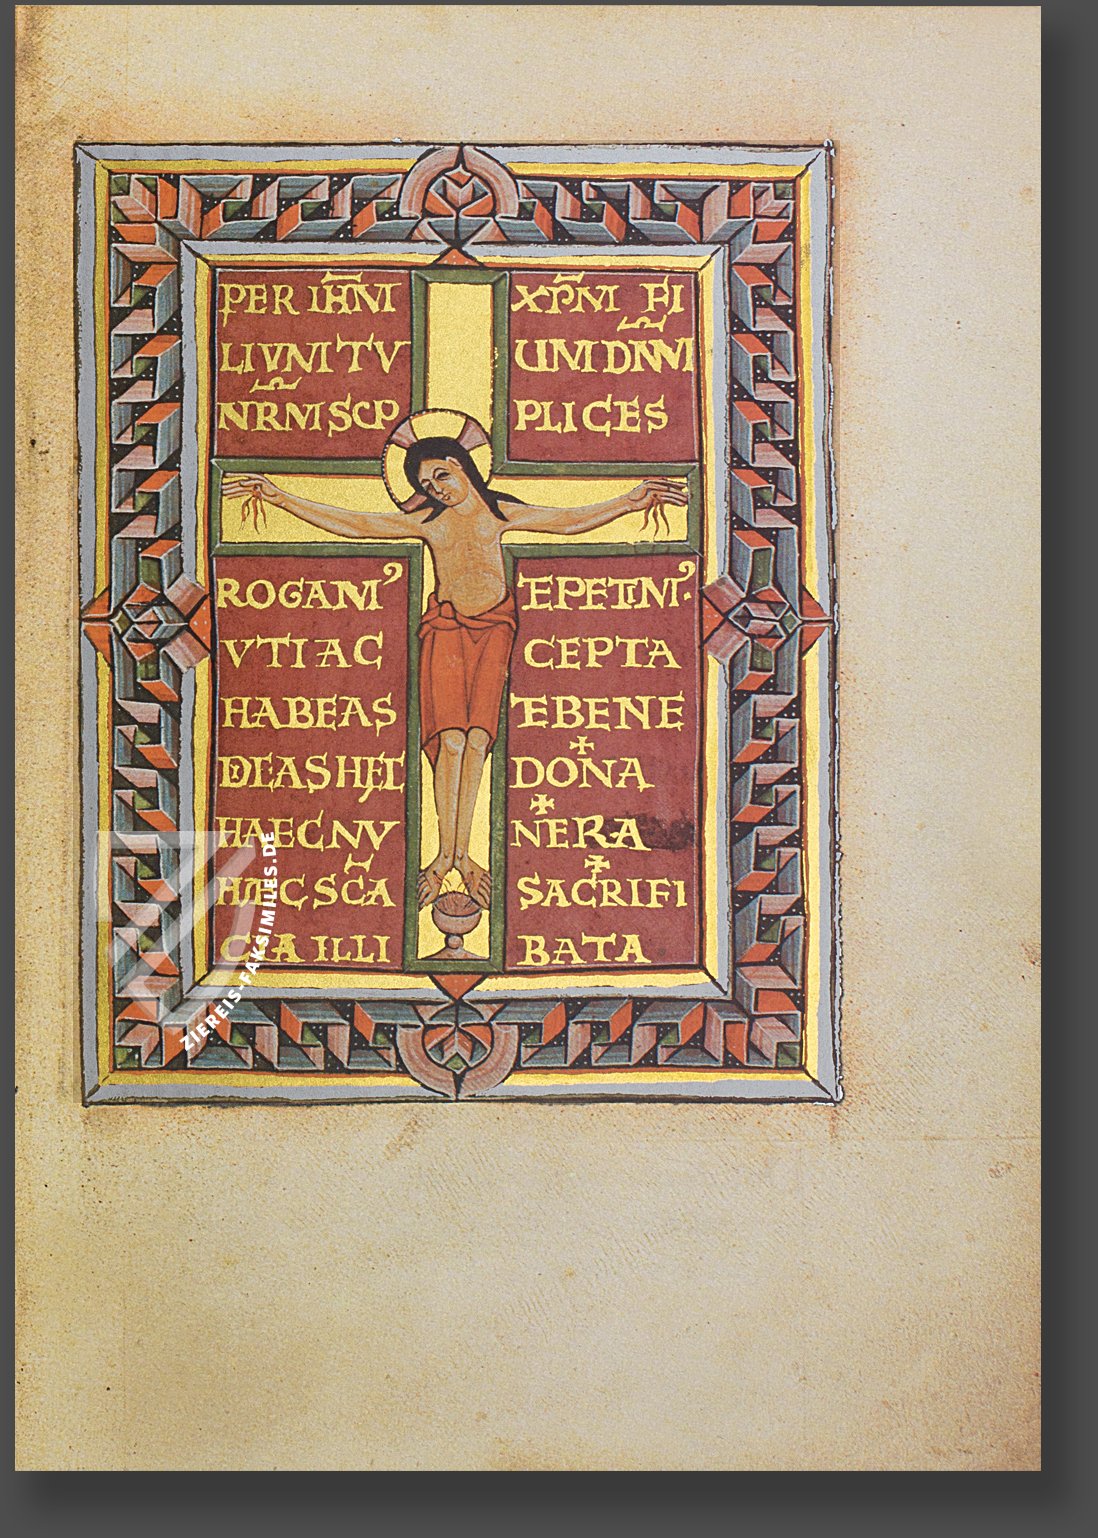 PER IHM̅ XP̅M FI
LIVM TV UM DNM
NRM SUP PLICES
ROGAMꝰ ET PETIMꝰ·
VTI AC CEPTA
HABEAS ET BENE
DICAS HĘC DONA
HAEC MV NERA
HÆC SCA SACRIFI
CIA ILLI BATA
ZIEREIS-FAKSIMILES.DE